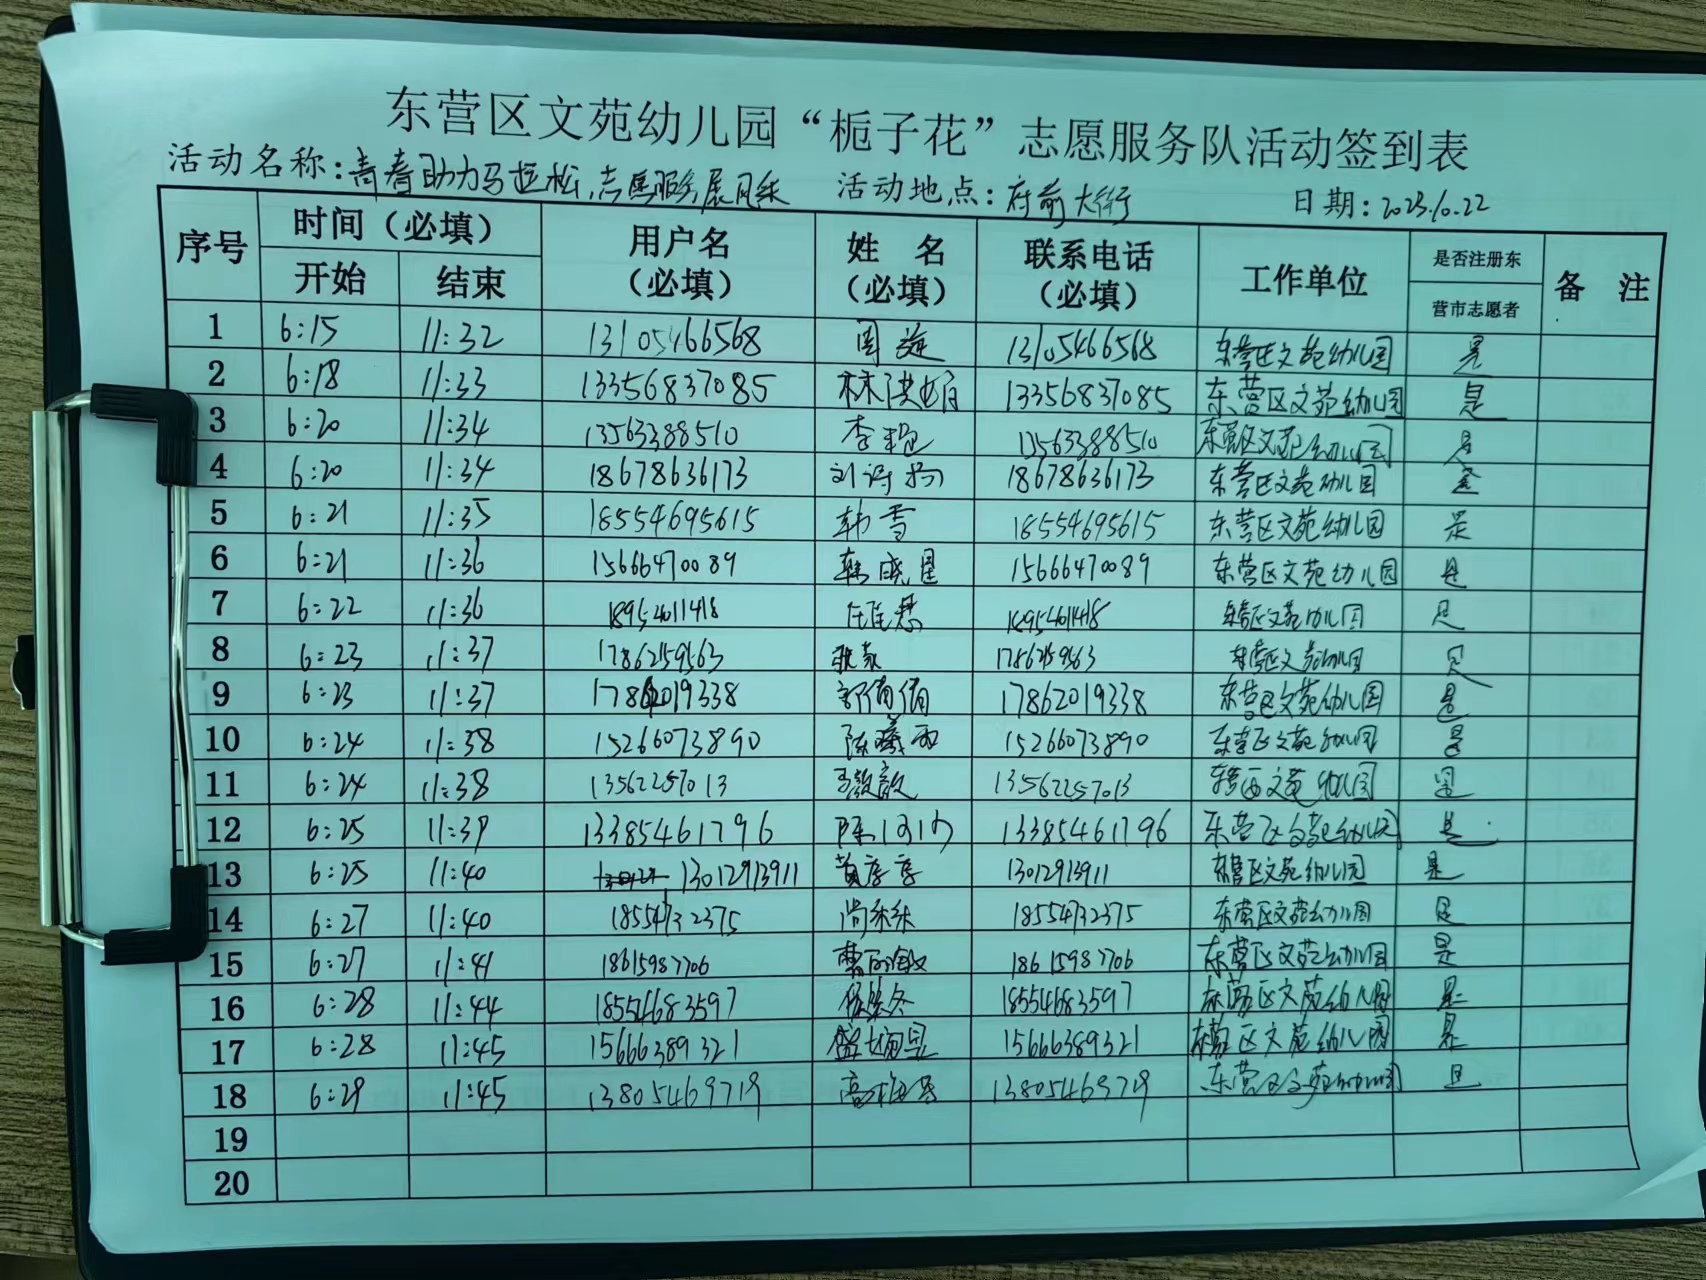 东营区文苑幼儿园“栀子花”志愿服务队活动签到表
活动名称：青春助力马拉松，志愿服务展风采 活动地点：府前大街 日期：2023.10.22
序号 时间（必填） 用户名（必填） 姓 名（必填） 联系电话（必填） 工作单位 是否注册东营市志愿者 备 注
开始 结束
1 6:15 11:32 13105466568 周 13105466568 东营区文苑幼儿园 是
2 6:18 11:33 13356837085 林洪娟 13356837085 东营区文苑幼儿园 是
3 6:20 11:34 13563388510 李艳 13563388510 东营区文苑幼儿园 是
4 6:20 11:34 18678636173 刘 18678636173 东营区文苑幼儿园 是
5 6:21 11:35 18554695615 韩雪 18554695615 东营区文苑幼儿园 是
6 6:21 11:36 15666470089 韩晓星 15666470089 东营区文苑幼儿园 是
7 6:22 11:36 18954011418 18954011418 东营区文苑幼儿园 是
8 6:23 11:37 17862159563 张 17862159563 东营区文苑幼儿园 是
9 6:23 11:37 17862019338 郭倩倩 17862019338 东营区文苑幼儿园 是
10 6:24 11:38 15266073890 陈曦雨 15266073890 东营区文苑幼儿园 是
11 6:24 11:38 13562257013 王毅毅 13562257013 东营区文苑幼儿园 是
12 6:25 11:39 13385461796 陈 13385461796 东营区文苑幼儿园 是
13 6:25 11:40 13012913911 黄季季 13012913911 东营区文苑幼儿园 是
14 6:27 11:40 18554732375 尚 18554732375 东营区文苑幼儿园 是
15 6:27 11:41 18615987706 敏 18615987706 东营区文苑幼儿园 是
16 6:28 11:44 18554683597 18554683597 东营区文苑幼儿园 是
17 6:28 11:45 15666389321 盛婉昱 15666389321 东营区文苑幼儿园 是
18 6:29 11:45 13805469719 高 13805469719 东营区文苑幼儿园 是
19
20